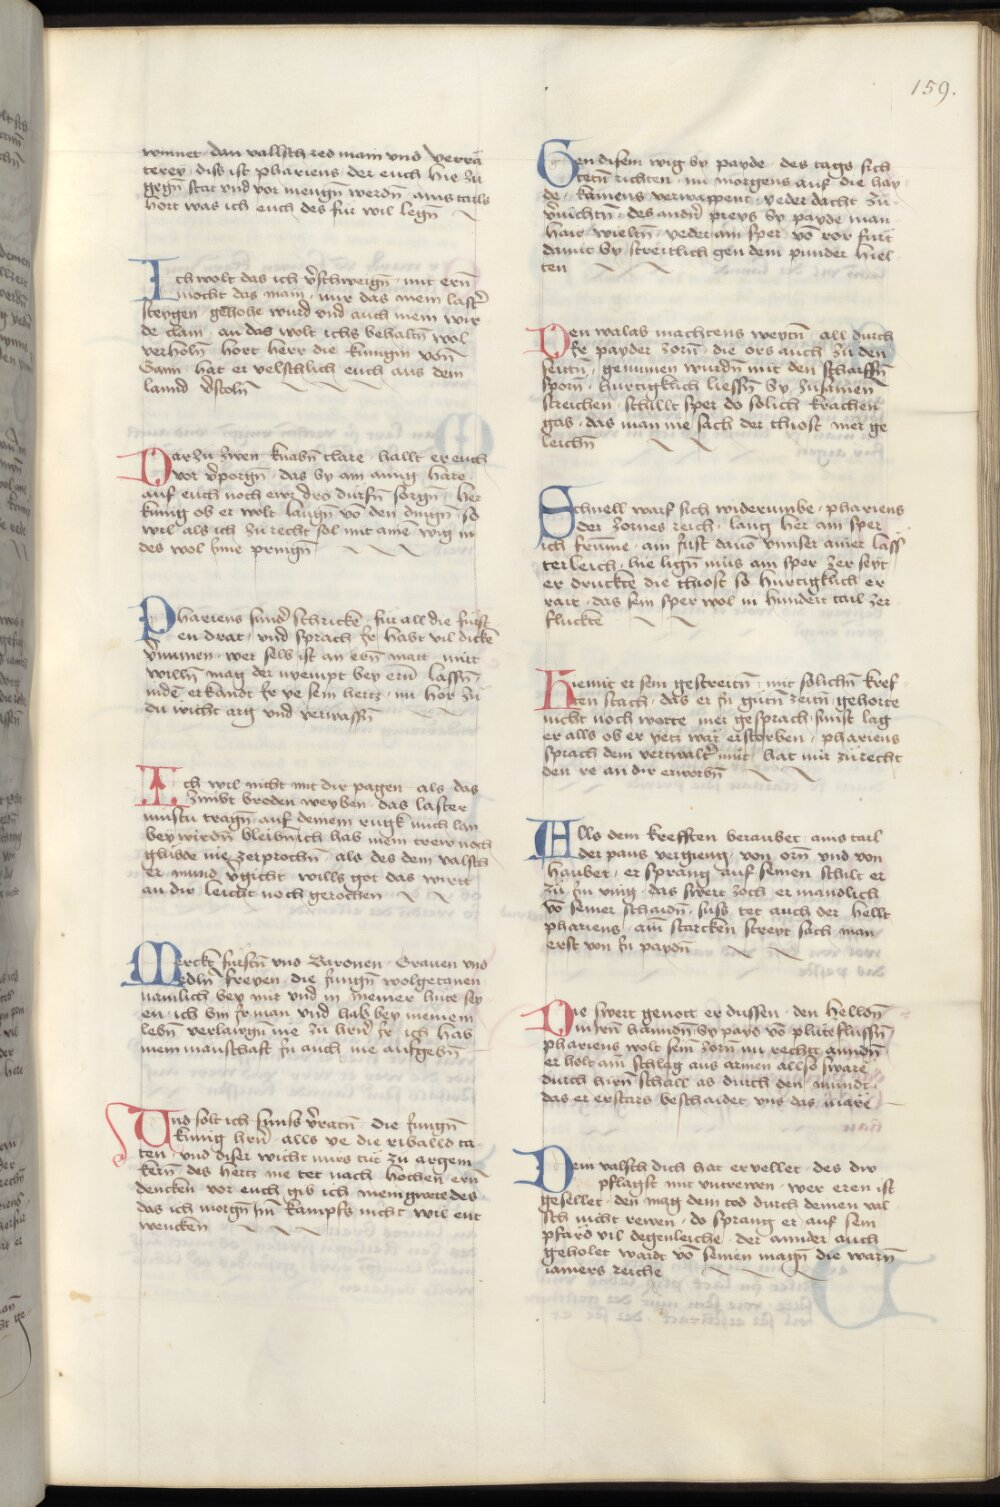 159.
wunnet · dan vallsch red main vnd verrä
terey · diss ist phariens der euch hie zu
gegn̄ stat vnd vor mengn̄ werdn̄ · ains tails
hort was ich euch des fur wil legn̄
Ich wolt das ich v̄schweign̄ · mit ern̄
mocht das main · nur das mein last̄
steygen · gehohe wurd vnd auch mein wir
de clain · an das wolt ichs behaltn̄ wol
verholn̄ · hort herr die kunigin von
Gann · hat er velschlich euch aus dem
lannd v̄stoln̄
Darzu zwen knabn̄ clare · hallt er euch
vor v̄porgn̄ · das by am ainig hare ·
auf euch noch ewr dro durfn̄ sorgn̄ · her
kunig ob er wolt laugn̄ vō den dingn̄ · so
wil als ich zu recht sol mit ainē wig in
des wol ſine pringn̄
Phariens sund̄ schricke · fur all die furst
en drat · vnd sprach Ir habt vil dicken
v̄numen · wer selb ist an ern̄ matt · mit
willn̄ mag der nyempt bey ern̄ lassn̄ ·
inde erkandt Ir ye sein hertz · nu hor zu
du wicht arg vnd verwassn̄
Ich wil nicht mit dir pagen · als das
zimbt breden weyben · das laster
mustu tragn̄ · auf deinem rugk mich lan
bey wirdn̄ bleibn̄ ich hab mein trew noch
glubde nie zerprochn̄ · als des dein valsch
er mund v̄gicht · wills got das wirtt
an dir leicht noch gerochen
Merckt furstn̄ vnd Baronen · Grauen vnd
edln̄ freyen · die Iungn̄ wolgetanen
namlich bey mir vnd in meiner hute sey
en · ich bin Ir man vnd hab bey meinem
lebn̄ verlawgn̄ nie zu hern̄ Ir · ich hab
mein manschaft In auch nie aufgebn̄
Vnd solt ich sunst v̄ratn̄ · die Iungn̄
kunig hern̄ · alls ye die ribaLld ta
ten · vnd diser wicht mirs tut zu argem
kern̄ · des hertz nie tet nach hochen ern̄
dencken · vor euch gib ich mein gwere des
das ich morgn̄ Im kampfs nicht wil ent
wencken
Gen disem wig by payde · des tags sich
tetn̄ richten · nu morgens auf die hay
de · kamens verwappent · yeder dacht zu
v̄nichtn̄ · des andn̄ preys by payde man
hait wieltn̄ · yeder am sper vō ror furt
damit by streitlich gen dem punder hiel
ten
Den walas machtens weytn̄ · all durch
Ir payder zorn̄ · die ors auch zu den
seitn̄ · genumen wurdn̄ mit den scharffn̄
sporn̄ · hurtigklich liessn̄ by zusamen
streichen · schillt sper do solich krachen
gab · das man nie sach der thiost mer ge
leichn̄
Schnell warf sich widerumbe · phariens
der zornes reich · lang her am sper
ich frume · am fust dauō vnnser ainer lass
terleich · hie lign̄ mus am sper zer seyt
er druckte die thiost so hurtigklich er
rait · das sein sper wol in hundert tail zer
fluckte
Hiemit er sein gestreitn̄ · mit solichn̄ kref
ten stach · das er In gutn̄ zeitn̄ gehorte
nicht noch worte mer gesprach · sunst lag
er alls ob er yetz wär erstorben · phariens
sprach dem vertwalt̄ mut · hat mir zurecht
den re an dir erworbn̄
Allo dem kreften beraubet · ains tail
der paus vergieng · von orn̄ vnd von
haubet · er sprang auf seinen schilt er
zu Im ving · das swert zoch er manndlich
vō seiner schaidn̄ · suss tet auch der hellt
phariens · ain starcken streyt sach man
erst von In paydn̄
Die swert genott er dussen · den hellon̄
Inirn̄ handn̄ by payd vō plute flussn̄
phariens wolt sein zorn̄ nu rechte anndn̄
er holt ain schlag aus armen allso sware
durch hirn̄ schall as durch den mundt ·
das er erstarb beschaidet vns das mare
Dein valsch dich hat ervellet · des dw
pflagst mit vntrewen · wer eren ist
gesellet · den mag dein tod durch deinen val
sch nicht rewen · do sprang er auf sein
pfärd vil degenleiche · der annder auch
geholet wardt vō seinen magn̄ die warn̄
iamers reiche